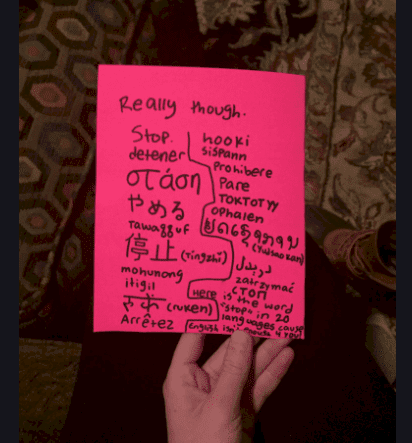 Really though.
Stop.
detener
στάση
やめる
Tawagguf
停止 (Tingzhi)
mohunong
itigil
रुकें (ruken)
Arrêtez
hooki
sispann
Prohibere
Pare
токтотуу
ophalen
دريدل
zatrzymać
стоп
Here is the word
"stop" in 20
languages cause
English isn't 4 you!